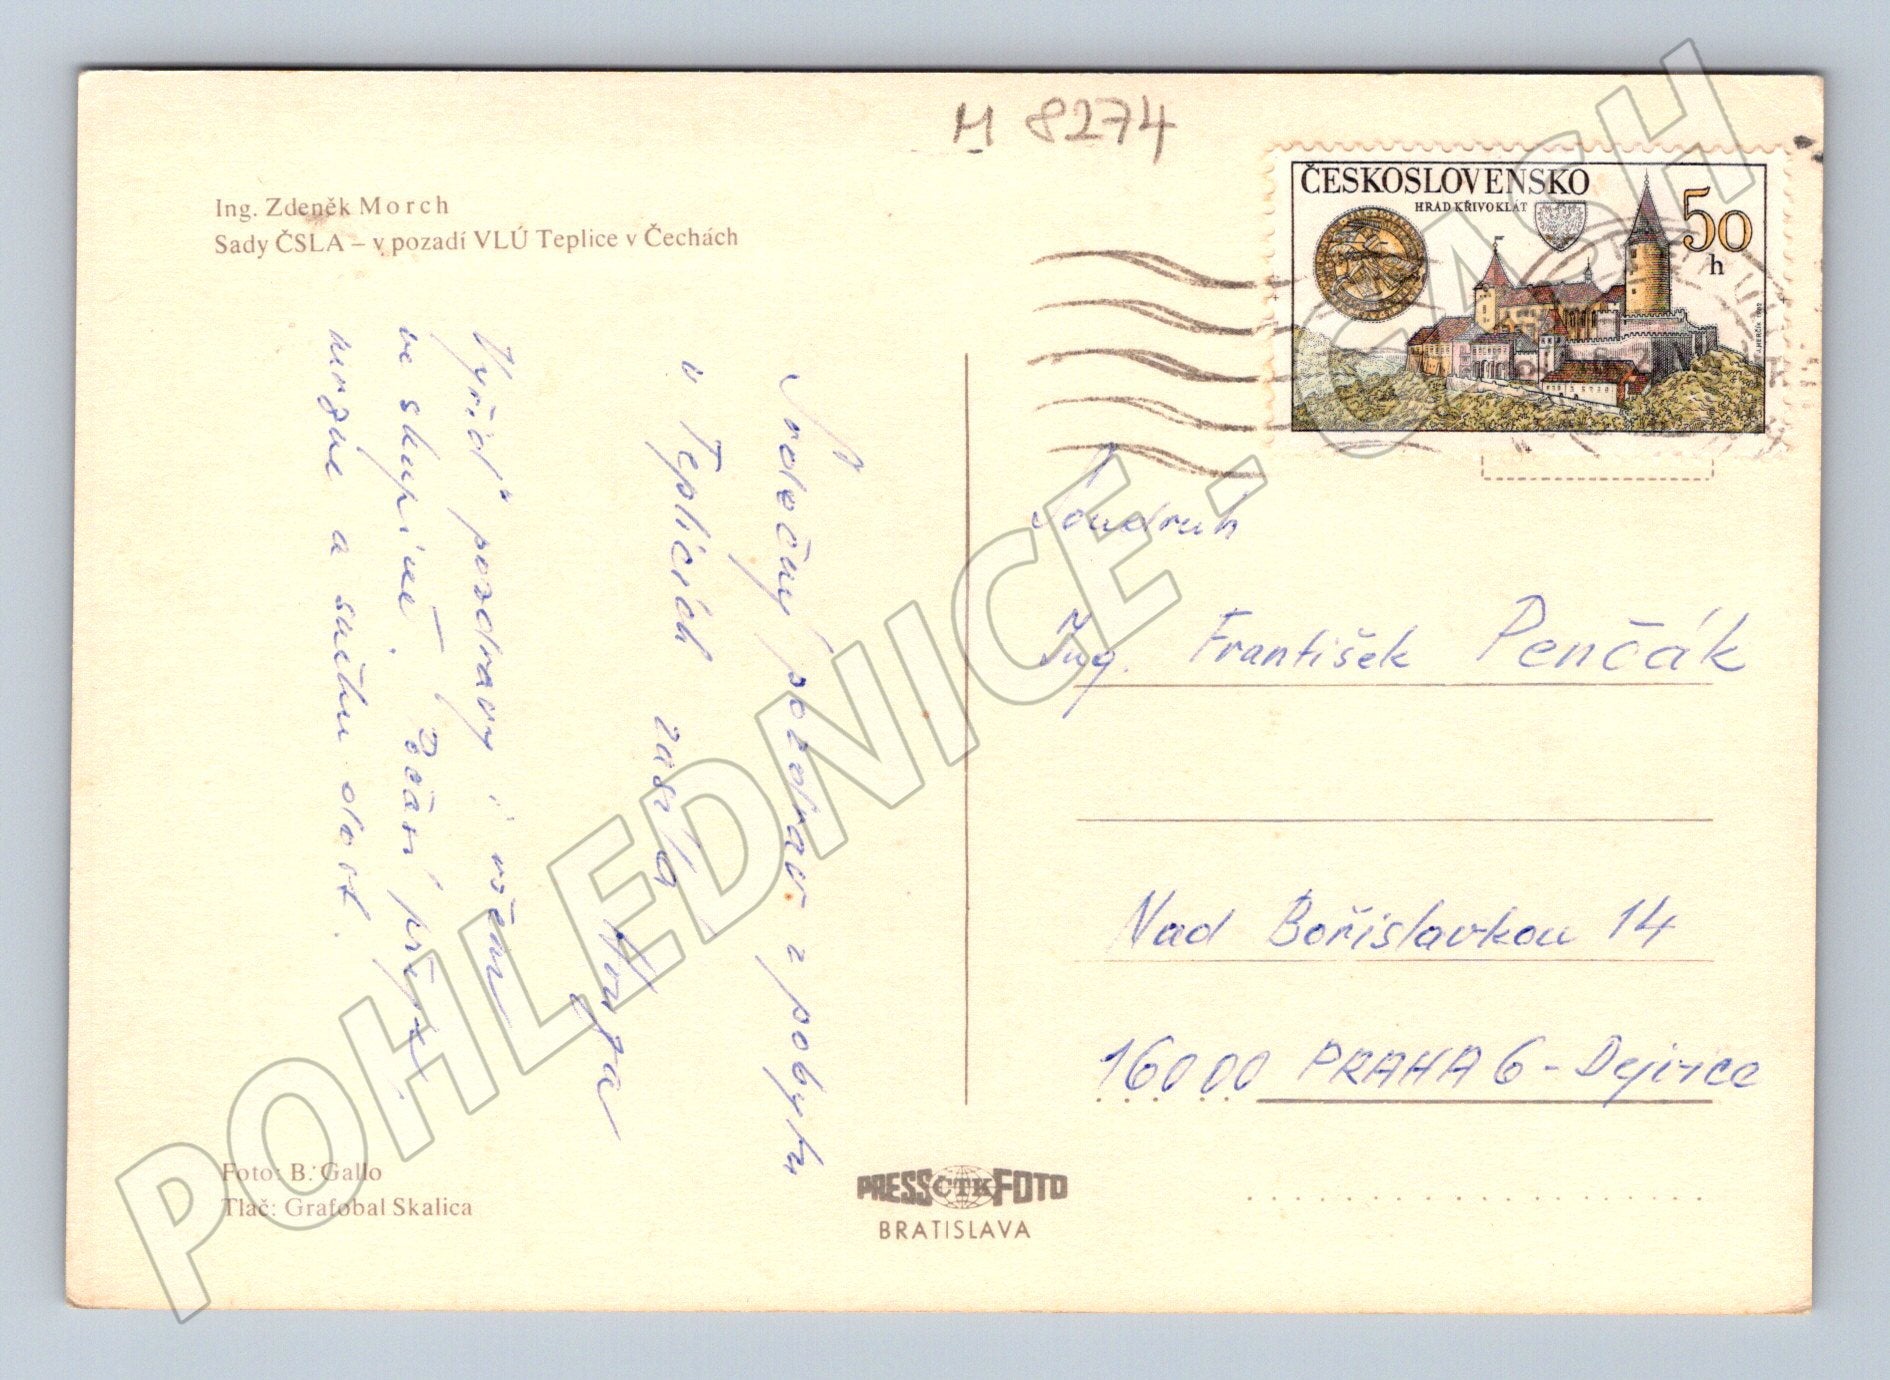 M 8274
Ing. Zdeněk Morch
Sady ČSLA – v pozadí VLÚ Teplice v Čechách
ČESKOSLOVENSKO
HRAD KŘIVOKLÁT
50
h
J. HERČÍK 1982
Srdečný pozdrav z pobytu
v Teplicích zasílá
Vyřiď pozdravy i všem
ve skupině. Počasí přijx.
nurgue a sucho dost.
Soudruh
Ing. František Penčák
Nad Bořislavkou 14
16000 PRAHA 6 - Dejvice
Foto: B. Gallo
Tlač: Grafobal Skalica
PRESS ČTK FOTO
BRATISLAVA
POHLEDNICE - CASH